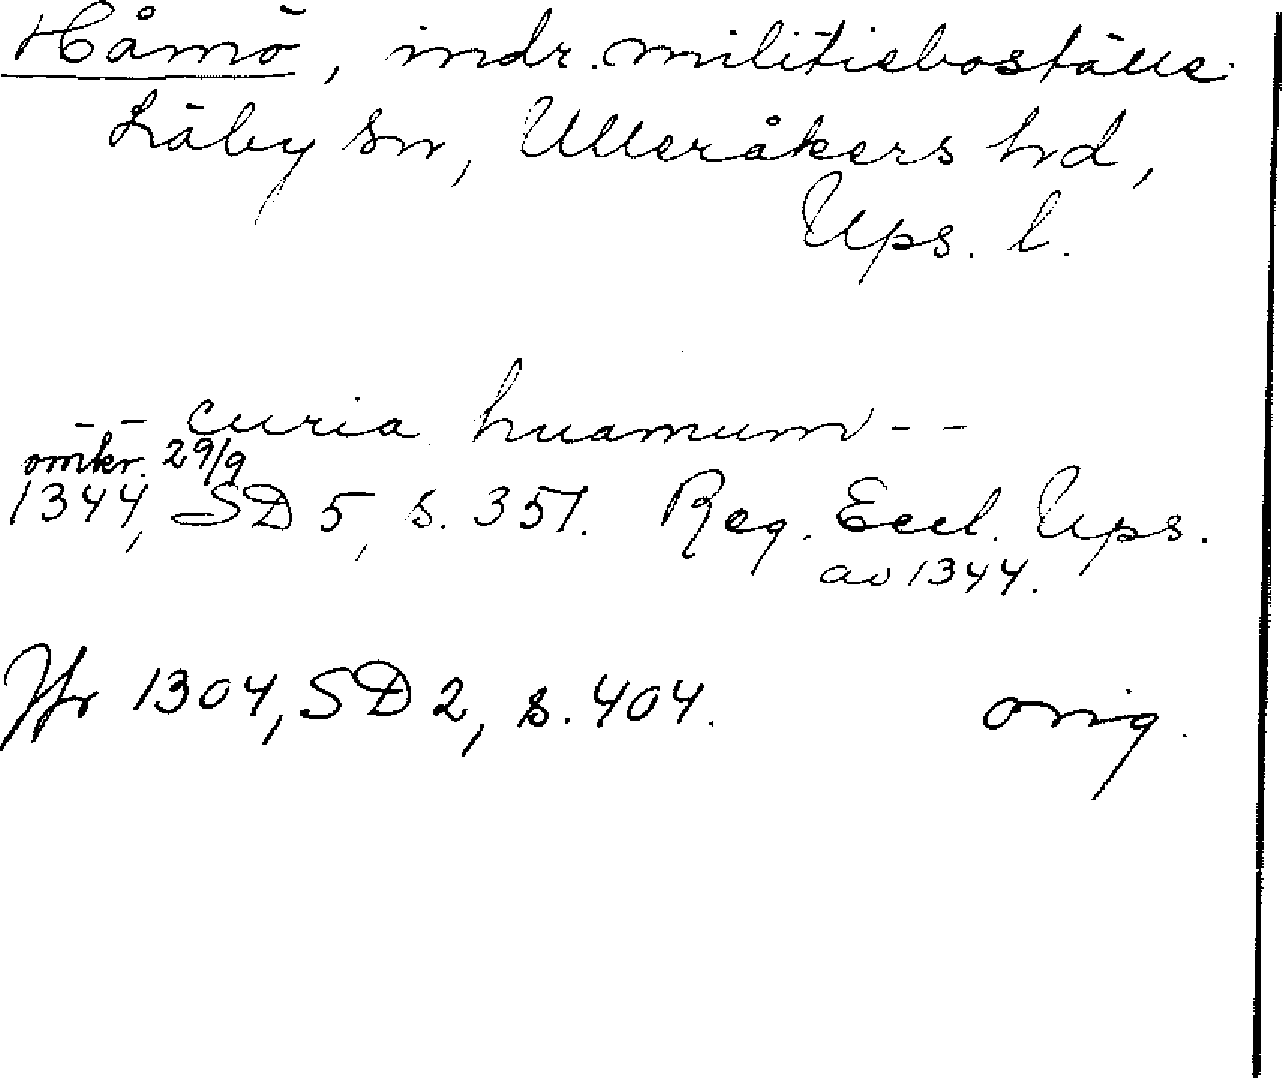 Håmö, indr. militieboställe.
Läby sn, Ulleråkers hd,
Ups. l.
-- curia huamum --
omkr. 29/9
1344, SD 5, s. 351. Reg. Eccl. Ups.
av 1344.
Jfr 1304, SD 2, s. 404. orig.